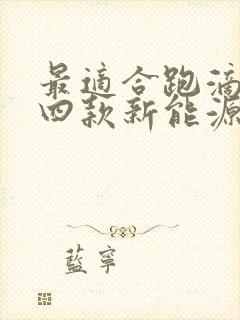 最適合跑滴
四款新能源
藍寧